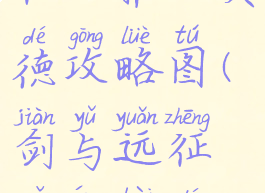 dé gōng lüè tú
德攻略图(
jiàn yǔ yuǎn zhēng
剑与远征